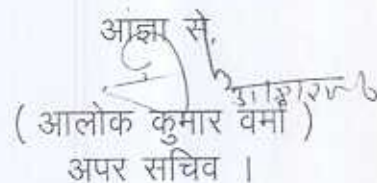 आज्ञा से,
( आलोक कुमार वर्मा )
अपर सचिव ।